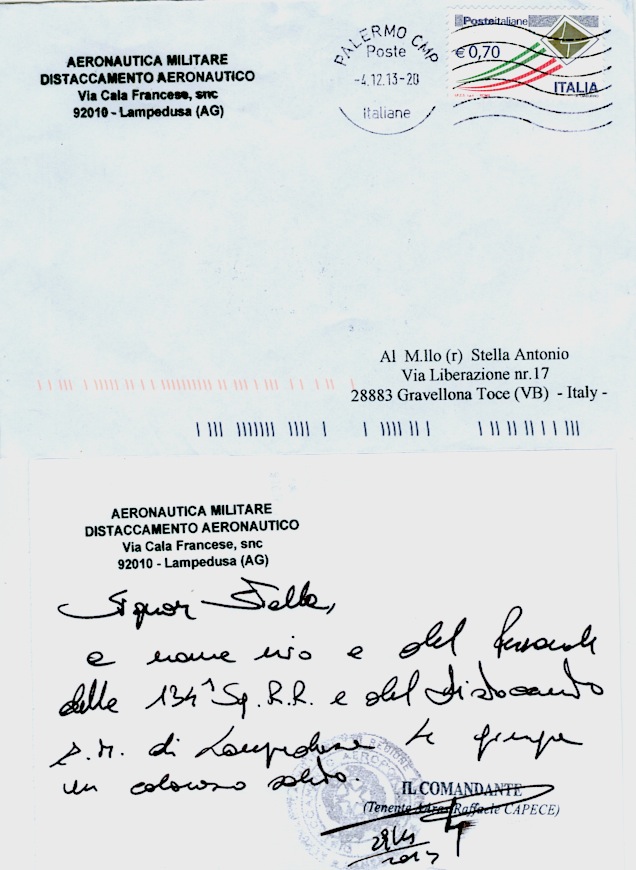 AERONAUTICA MILITARE
DISTACCAMENTO AERONAUTICO
Via Cala Francese, snc
92010 - Lampedusa (AG)
PALERMO CMP
Poste
-4.12.13-20
italiane
Posteitaliane
€ 0,70
ITALIA
Al M.llo (r) Stella Antonio
Via Liberazione nr.17
28883 Gravellona Toce (VB) - Italy -
AERONAUTICA MILITARE
DISTACCAMENTO AERONAUTICO
Via Cala Francese, snc
92010 - Lampedusa (AG)
Signor Stella,
a nome mio e del Personale
della 134^ Sq. R.R. e del Distaccamento
A.M. di Lampedusa Le giunga
un caloroso saluto.
IL COMANDANTE
(Tenente Raffaele CAPECE)
2013